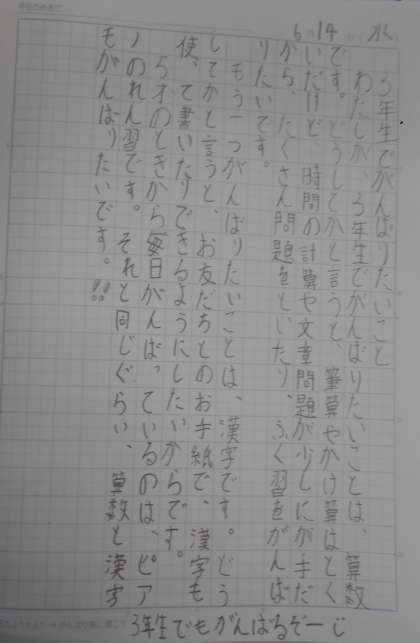 6月14日(水)
3年生でがんばりたいこと
わたしが、3年生でがんばりたいことは、算数
です。どうしてかと言うと、筆算やかけ算はとく
いだけど、時間の計算や文章問題が少しにが手だ
から、たくさん問題をといたり、ふく習をがんば
りたいです。
もう一つがんばりたいことは、漢字です。どう
してかと言うと、お友だちとのお手紙で、漢字も
使って書いたりできるようにしたいからです。
5才のときから毎日がんばっているのは、ピア
ノのれん習です。それと同じぐらい、算数と漢字
もがんばりたいです。!!
3年生でもがんばるぞー!